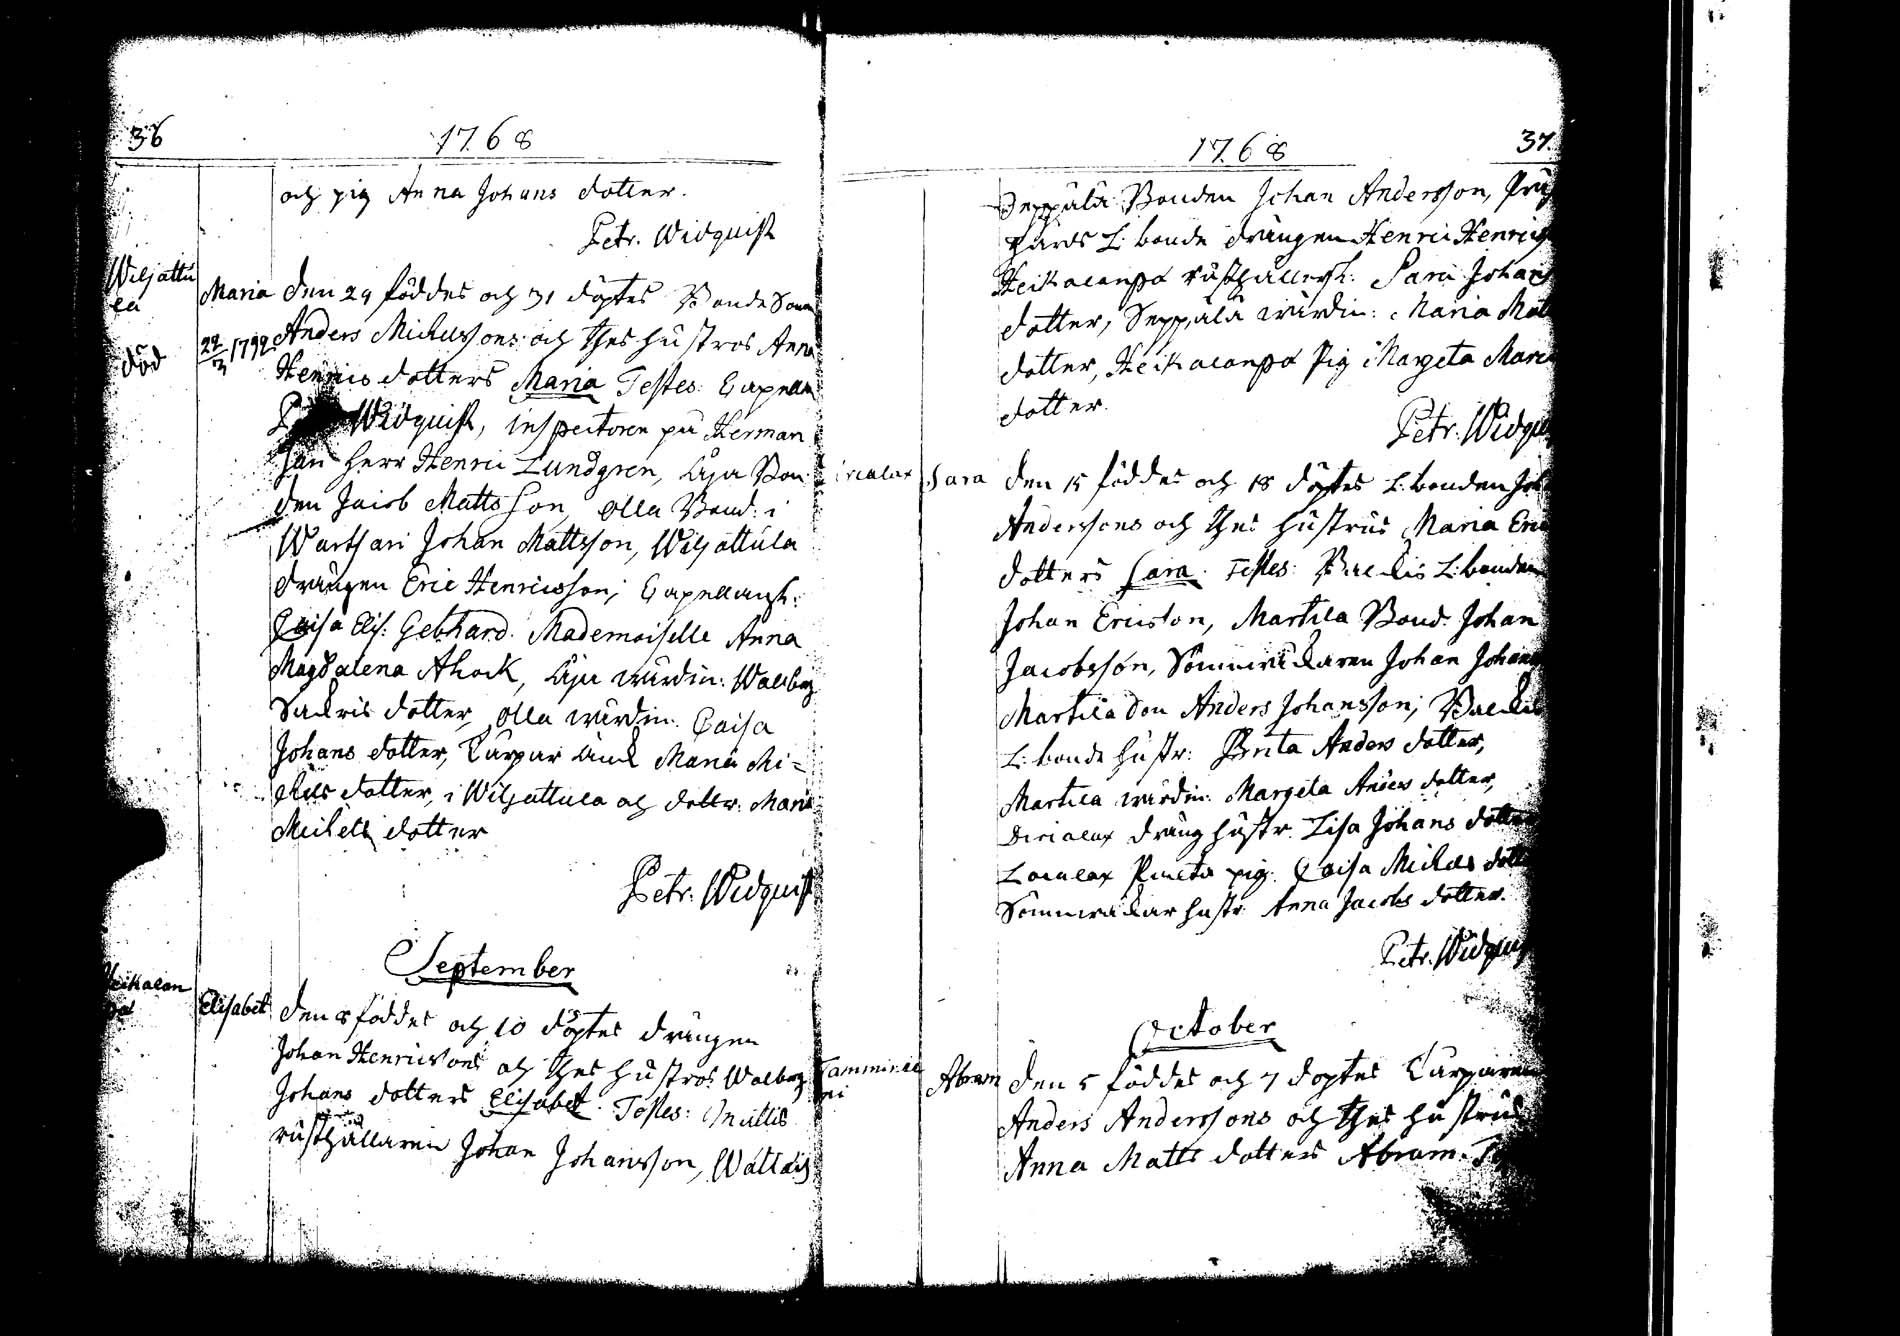 36
1768
och pig Anna Johans dotter.
Petr. Widquist
Wiljattu
la
Maria
den 29 föddes och 31 döptes Bonde Son
död
1792
Anders Michelssons och thes hustros Anna
Henrics dotters Maria Testes: Capellan
Widquist, inspectoren på Herman
Herr Henric Lundgren, Äijä Bon
den Jacob Mattsson, Olla Bond: i
Wartsari Johan Mattsson, Wiljattula
drängen Eric Henricsson; Capellansh:
Caisa Elis: Gebhard. Mademoiselle Anna
Magdalena Ahock, Äijä wärdin: Walborg
Sackris dotter, Olla wärdin: Caisa
Johans dotter, Maria Mi=
chels dotter, i Wiljattula och dottr: Maria
Michels dotter
Petr. Widquist
September
Heikalan
Elisabet
den 8 föddes och 10 döptes drängen
Johan Henricssons och thes hustros Walborg
Johans dotters Elisabet. Testes: Mattis
rusthållaren Johan Johansson,
1768
37.
Seppälä Bonden Johan Andersson,
L: bonde drängen Henric Henrics
Heikalanpä rusthållersh: Sara Johans
dotter, Seppälä wärdin: Maria Mat
dotter, Heikalanpä Pig Margeta Marc
dotter.
Petr. Widqu
Sara
den 15 föddes och 18 döptes L: bonden Joh
Anderssons och thes hustrus Maria Eric
dotters Sara. Testes: L: bonden
Johan Ericsson, Martila Bond. Johan
Jacobsson, Johan Johans
Martila Son Anders Johansson;
L: bonde hustr: Brita Anders dotter,
Martila wärdin: Margeta Anders dotter,
dräng hustr. Lisa Johans dotter
pig. Caisa Michels dott
hustr: Anna Jacobs dotter.
Petr. Widquis
October
Abram
den 5 föddes och 7 döptes
Anders Anderssons och thes hustrus
Anna Matts dotters Abram.